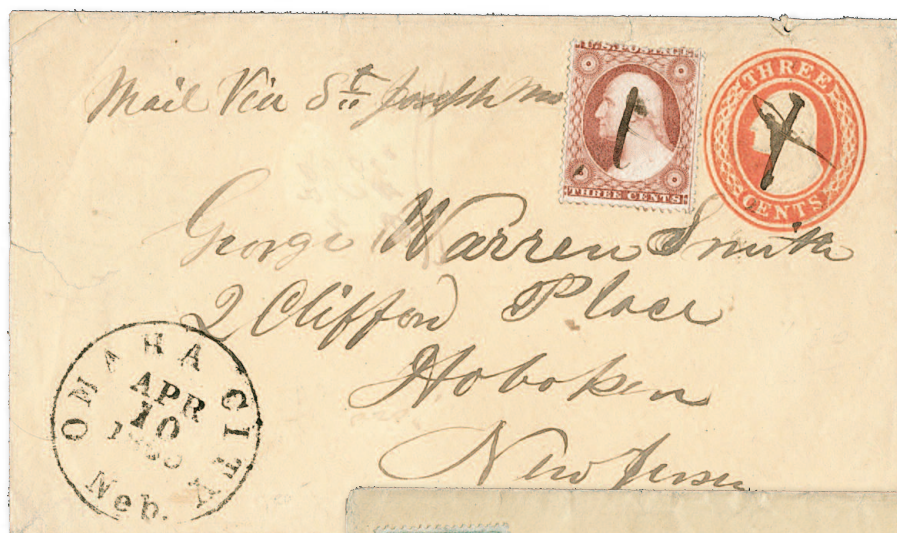 Mail Via St Joseph Mo
U.S. POSTAGE
THREE CENTS
THREE
CENTS
George Warren Smith
2 Clifford Place
Hoboken
New Jersey
OMAHA CITY
APR
10
Neb.